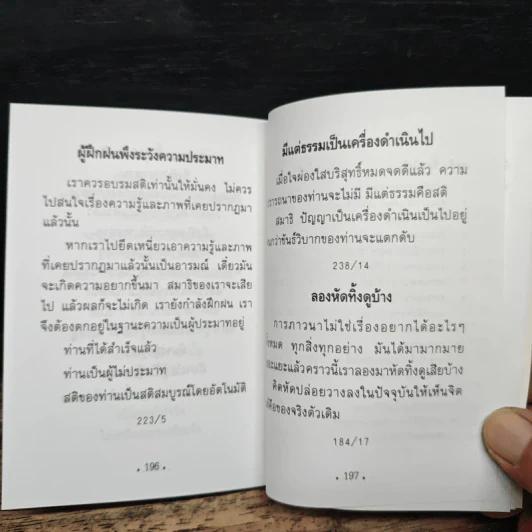 ผู้ฝึกฝนพึงระวังความประมาท
เราควรอบรมสติเท่านั้นให้มั่นคง ไม่ควร
ไปสนใจเรื่องความรู้และภาพที่เคยปรากฏมา
แล้วนั้น
หากเราไปยึดเหนี่ยวเอาความรู้และภาพ
ที่เคยปรากฏมาแล้วนั้นเป็นอารมณ์ เดี๋ยวมัน
จะเกิดความอยากขึ้นมา สมาธิของเราจะเสีย
ไป แล้วผลก็จะไม่เกิด เรายังกำลังฝึกฝน เรา
จึงต้องตกอยู่ในฐานะความเป็นผู้ประมาทอยู่
ท่านที่ได้สำเร็จแล้ว
ท่านเป็นผู้ไม่ประมาท
สติของท่านเป็นสติสมบูรณ์โดยอัตโนมัติ
223/5
• 196 •
มีแต่ธรรมเป็นเครื่องดำเนินไป
เมื่อใจผ่องใสบริสุทธิ์หมดจดดีแล้ว ความ
ของท่านจะไม่มี มีแต่ธรรมคือสติ
สมาธิ ปัญญาเป็นเครื่องดำเนินเป็นไปอยู่
ขันธ์วิบากของท่านจะแตกดับ
238/14
ลองหัดทิ้งดูบ้าง
การภาวนาไม่ใช่เรื่องอยากได้อะไรๆ
ทุกสิ่งทุกอย่าง มันได้มามากมาย
แล้วคราวนี้เราลองมาหัดทิ้งดูเสียบ้าง
คิดหัดปล่อยวางลงในปัจจุบันให้เห็นจิต
ของจริงตัวเดิม
184/17
• 197 •